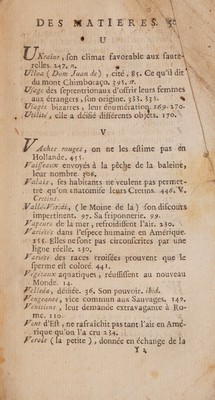 DES MATIERES.
U
UKraine, son climat favorable aux saute-
relles. 247. n.
Ulloa (Dom Juan de), cité, 85. Ce qu'il dit
du mont Chimboraço. 395. n.
Usage des septentrionaux d'offrir leurs femmes
aux étrangers, son origine. 333. 531.
Usages bizarres, leur énumération. 269. 270.
Utilité, elle a déifié différents objets. 170.
V.
VAches rouges, on ne les estime pas en
Hollande. 455.
Vaisseaux envoyés à la pêche de la baleine,
leur nombre. 308.
Valais, ses habitants ne veulent pas permet-
tre qu'on anatomise leurs Cretins. 446. V.
Cretins.
(le Moine de la) son discours
impertinent. 97. Sa friponnerie. 99.
Vapeurs de la mer, refroidissent l'air. 230.
Variétés dans l'espece humaine en Amérique.
155. Elles ne sont pas circonscrites par une
ligne réelle. 130.
Variété des races croisées prouvent que le
sperme est coloré. 441.
Végétaux aquatiques, réussissent au nouveau
Monde. 14.
Velléda, déifiée. 36. Son pouvoir. ibid.
Vengeance, vice commun aux Sauvages. 149.
leur demande extravagante à Ro-
me. 110.
Vent d'Est, ne rafraîchit pas tant l'air en Amé-
rique qu'on l'a cru 234.
Verole (la petite), donnée en échange de la
Y 2